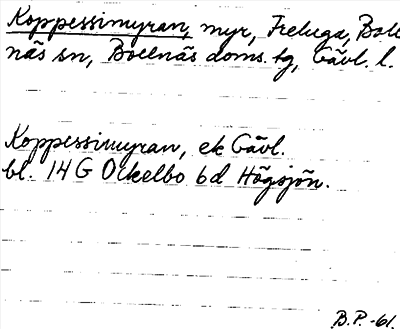 Koppessimyran, myr, Freluga, Boll
näs sn, Bollnäs doms. tg, Gävl. l.
Koppessimyran, ek Gävl.
bl. 14 G Ockelbo 6d Högsjön.
B.P.-61.